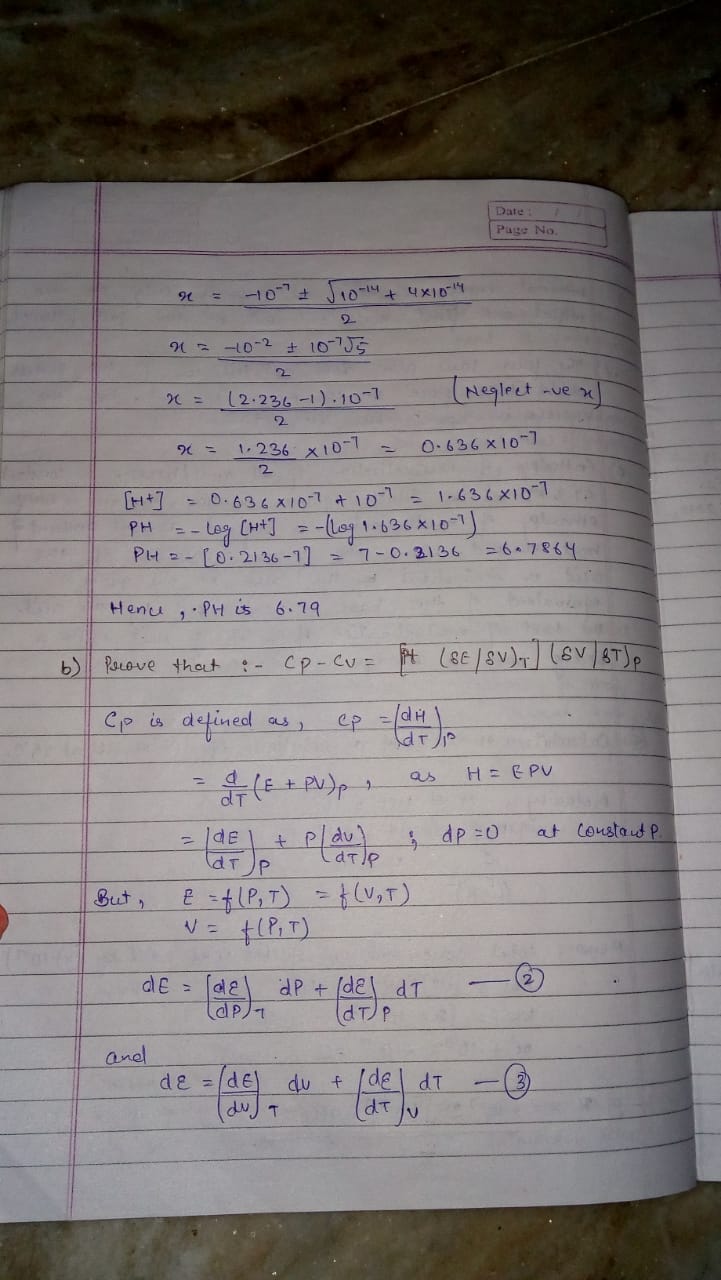 Date : / /
Page No.
x = -10⁻⁷ ± √10⁻¹⁴ + 4×10⁻¹⁴ / 2
x = -10⁻² ± 10⁻⁷√5 / 2
x = (2.236 -1).10⁻⁷ / 2 (Neglect -ve x)
x = 1.236 × 10⁻⁷ / 2 = 0.636 × 10⁻⁷
[H+] = 0.636 × 10⁻⁷ + 10⁻⁷ = 1.636 ×10⁻⁷
PH = - log [H+] = -(log 1.636 × 10⁻⁷)
PH = - [0.2136 -7] = 7 - 0.2136 = 6.7864
Hence , PH is 6.79
b) Prove that :- CP - CV = [P+ (δE/δV)T] (δV/δT)P
Cp is defined as , CP = (dH/dT)P
= d/dT (E + PV)P , as H = E PV
= (dE/dT)P + P(dV/dT)P ; dP =0 at constant P.
But, E = f(P, T) = f(V, T)
V = f(P, T)
dE = (dE/dP)T dP + (dE/dT)P dT — ②
and
dE = (dE/dV)T dV + (dE/dT)V dT — ③